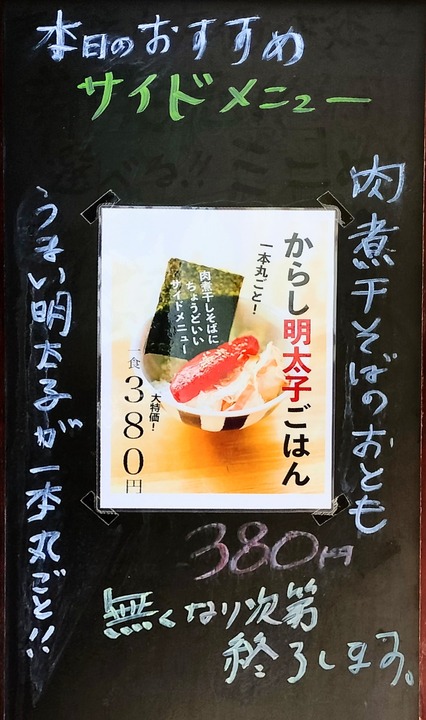 本日のおすすめ
サイドメニュー
肉煮干そばのおとも
からし明太子ごはん
一本丸ごと!
肉煮干しそばに
ちょうどいい
サイドメニュー
大特価!
一食380円
うまい明太子が一本丸ごと!!
380円
無くなり次第
終了します。